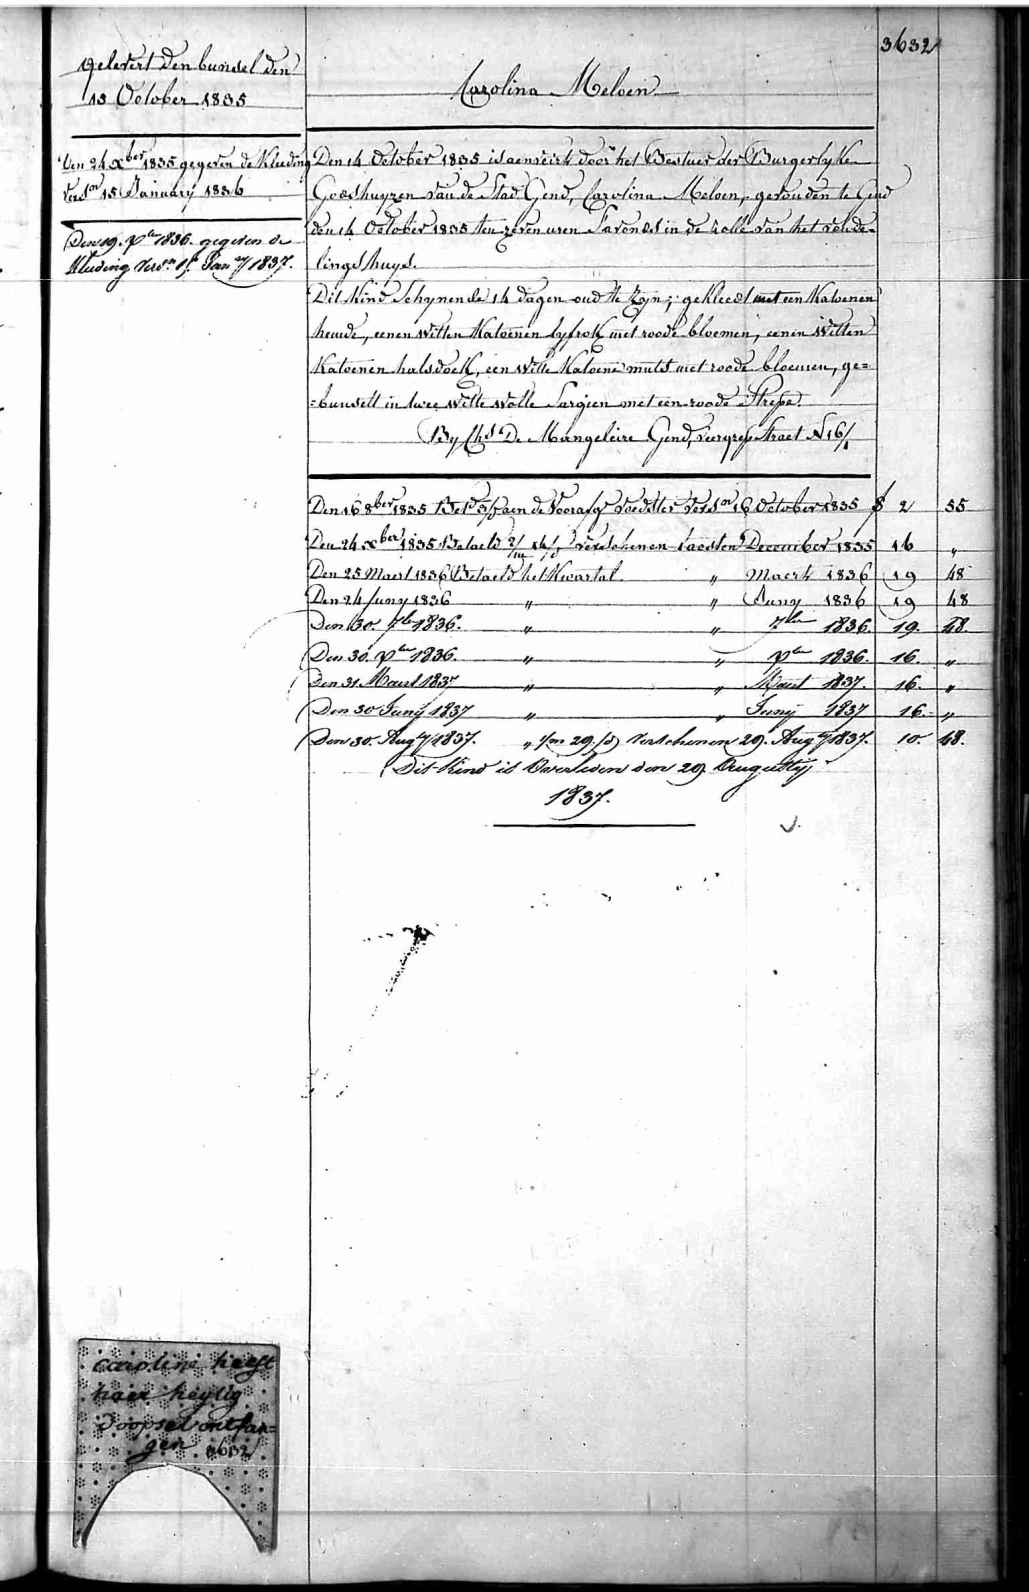 3632
gelevert den bunsel den
13 October 1835
Carolina Meloen
Den 24 Xber 1835 gegeven de Kleeding
versn 15 January 1836
Den 19. Xber 1836. gegeven de
Kleeding versn 1st Jany 1837.
Den 14 October 1835 is aenveirt door het Bestuer der Burgerlyke
Godshuyzen van de Stad Gend, Carolina Meloen, gevonden te Gend
den 14 October 1835 ten zeven uren s'avonds in de rolle van het vonde-
lings huys.
Dit Kind Schynende 14 dagen oud te Zyn; gekleedt met een Katoenen
hemde, eenen witten Katoenen lyfrok met roode bloemen, eenen Witten
Katoenen halsdoek, een witte Katoene muts met roode bloemen, ge=
=bunselt in twee witte wolle Sargien met een roode Strepe.
By Chs De Mangeleire Gend, Straet N 16/1
Den 16 8ber 1835 Betd aen de Voorafge voedster versn 16 October 1835 2 55
Den 24 Xber 1835 Betaeld 2/m 14/d verschenen laesten December 1835 16 "
Den 25 Maert 1836 Betaeld het Kwartal " Maert 1836 19 48
Den 24 Juny 1836 " " Juny 1836 19 48
Den 30. 7ber 1836. " " 7ber 1836. 19. 48.
Den 30. Xber 1836. " " Xber 1836. 16. "
Den 31 Maert 1837 " " Maert 1837. 16. "
Den 30 Juny 1837 " " Juny 1837 16. "
Den 30. Augy 1837. " 1/m 29/d verschenen 29. Augy 1837. 10. 48.
Dit Kind is Overleden den 29 Augusty
1837.
caroline heeft
haer heylig
doopsel ontfan=
gen 3632